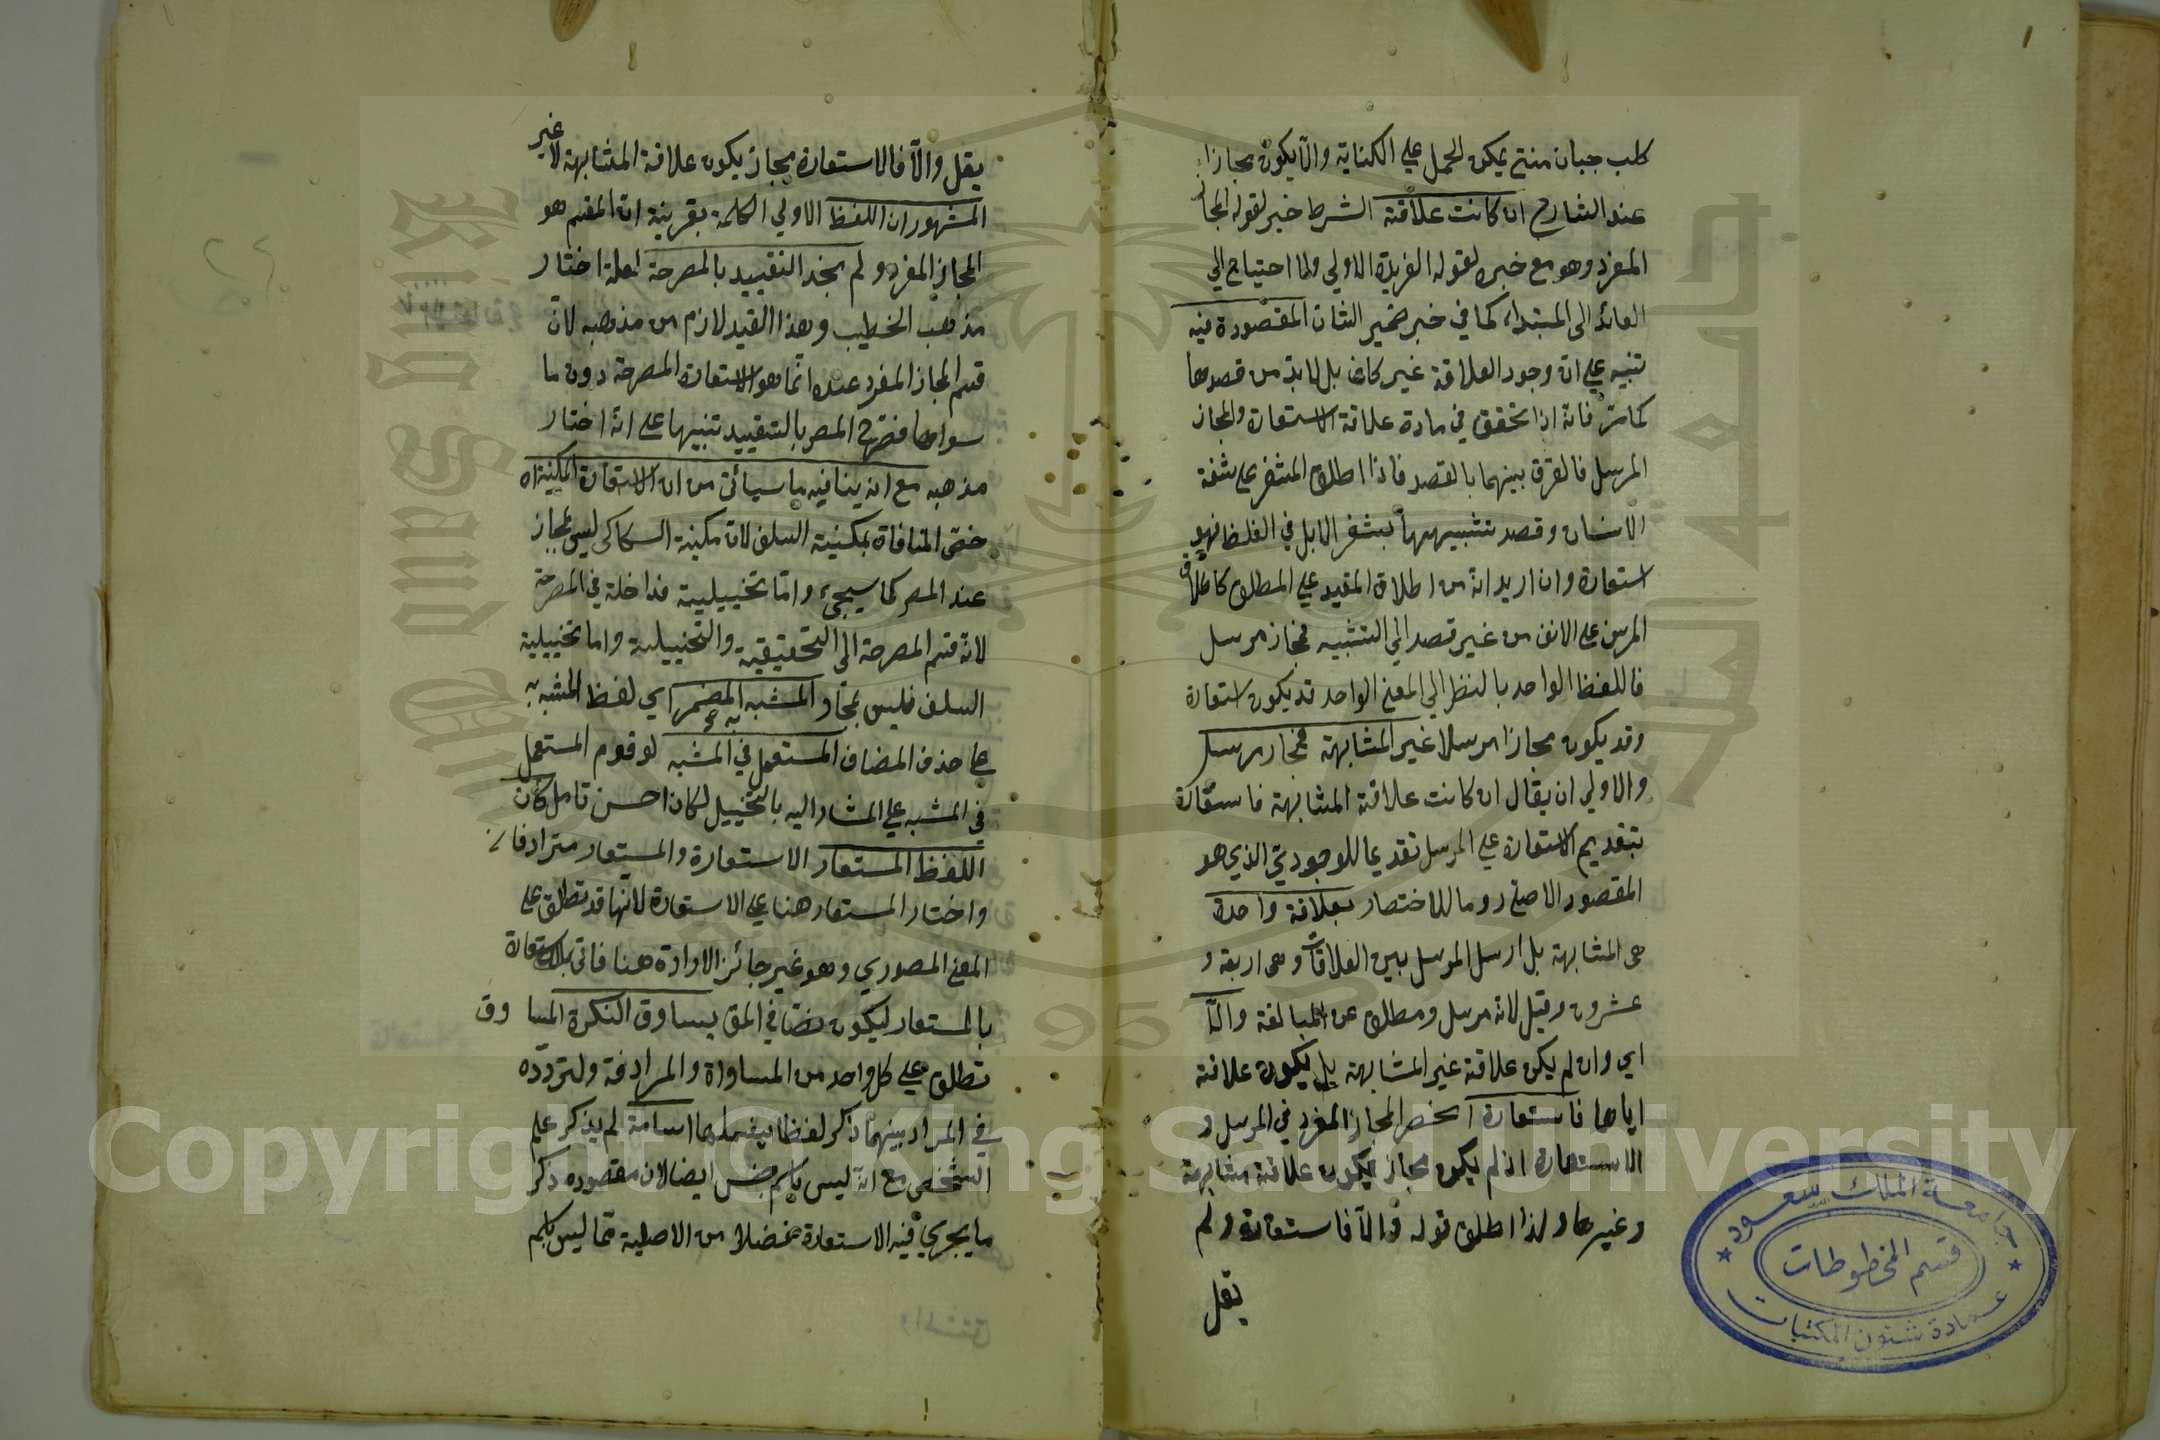 كلب جبان منتج يمكن الحمل على الكناية والا يكون مجازا
عند الشارح ان كانت علاقته الشرط خبر لقوله المجاز
المفرد وهو مع خبره لقوله الفريدة الاولى ولا احتياج الى
العائد الى المبتداء كما في خبر ضمير الشان المقصودة فيه
تنبيه على ان وجود العلاقة غير كاف بل لا بد من قصدها
كما مر فانه اذا تحقق في مادة علاقة الاستعارة والمجاز
المرسل فالفرق بينهما بالقصد فاذا اطلق المشفر على شفة
الانسان وقصد تشبيهها بمشفر الابل في الغلظ فهو
استعارة وان اريد انه من اطلاق المقيد على المطلق كاطلاق
المرسن على الانف من غير قصد الى التشبيه فمجاز مرسل
فاللفظ الواحد بالنظر الى المعنى الواحد قد يكون استعارة
وقد يكون مجازا مرسلا غير المشابهة فمجاز مرسل
والاولى ان يقال ان كانت علاقته المشابهة فاستعارة
بتقديم الاستعارة على المرسل تقديما للوجودي الذي هو
المقصود الاصلي وروما للاختصار بعلاقة واحدة
هى المشابهة بل ارسل المرسل بين العلاقات وهى اربعة و
عشرون وقيل لانه مرسل ومطلق عن المبالغة والا
اي وان لم يكن علاقته غير المشابهة بل يكون علاقته
اياها فاستعارة انحصر المجاز المفرد في المرسل و
الاستعارة اذ لم يكن مجاز يكون علاقته مشابهة
وغيرها ولذا اطلق قوله والا فاستعارة ولم
يقل
يقل والا فالاستعارة مجاز يكون علاقة المشابهة لا غير
المشهور ان اللفظ الاولى الكلمة بقرينة ان المقسم هو
المجاز المفرد ولم نجد التقييد بالمصرحة لعله اختار
مذهب الخطيب وهذا القيد لازم من مذهبه لان
قسم المجاز المفرد عنده انما هو الاستعارة المصرحة دون ما
سواها فتصريح المص بالتقييد تنبيها على انه اختار
مذهبه مع انه ينافيه ما سيأتى من ان الاستعارة المكنية اه
ختى المنافاة بمكنية السلف لان مكنية السكاكى ليس بمجاز
عند المص كما سيجئ واما تخييلية فداخلة في المصرحة
لانه قسم المصرحة الى التحقيقية والتخييلية واما تخييلية
السلف فليس بمجاز والمشبه به المضمر اي لفظ المشبه به
على حذف المضاف المستعمل في المشبه لو قدم المستعمل
في المشبه على المشار اليه بالتخييل لكان احسن تامل كان
اللفظ المستعار الاستعارة والمستعار مترادفان
واختار المستعار هنا على الاستعارة لانها قد تطلق على
المعنى المصدري وهو غير جائز الارادة هنا فاتى بالاستعارة
بالمستعار ليكون نصا في المق يساوق النكرة المساوق
تطلق على كل واحد من المساواة والمرادفة ولتردده
في المراد بينهما ذكر لفظا يشملهما اسامة لم يذكر علم
الشخص مع انه ليس باسم جنس ايضا لان مقصوده ذكر
ما يجري فيه الاستعارة فضلا من الاصلية مما ليس باسم
جامعة الملك سعود
قسم المخطوطات
عمادة شئون المكتبات
King Saud University
1957
Copyright © King Saud University